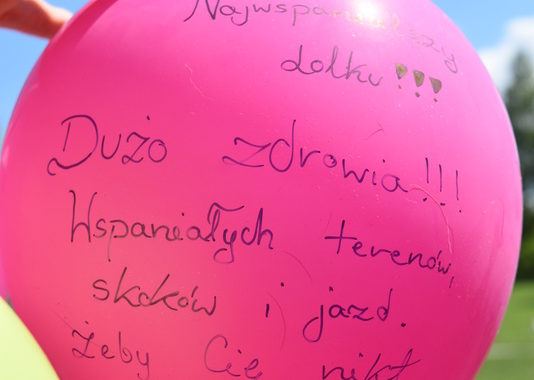 Najwspanialszy
Lolku!!!
Dużo zdrowia!!!
Wspaniałych terenów,
skoków i jazd.
Żeby Cię nikt